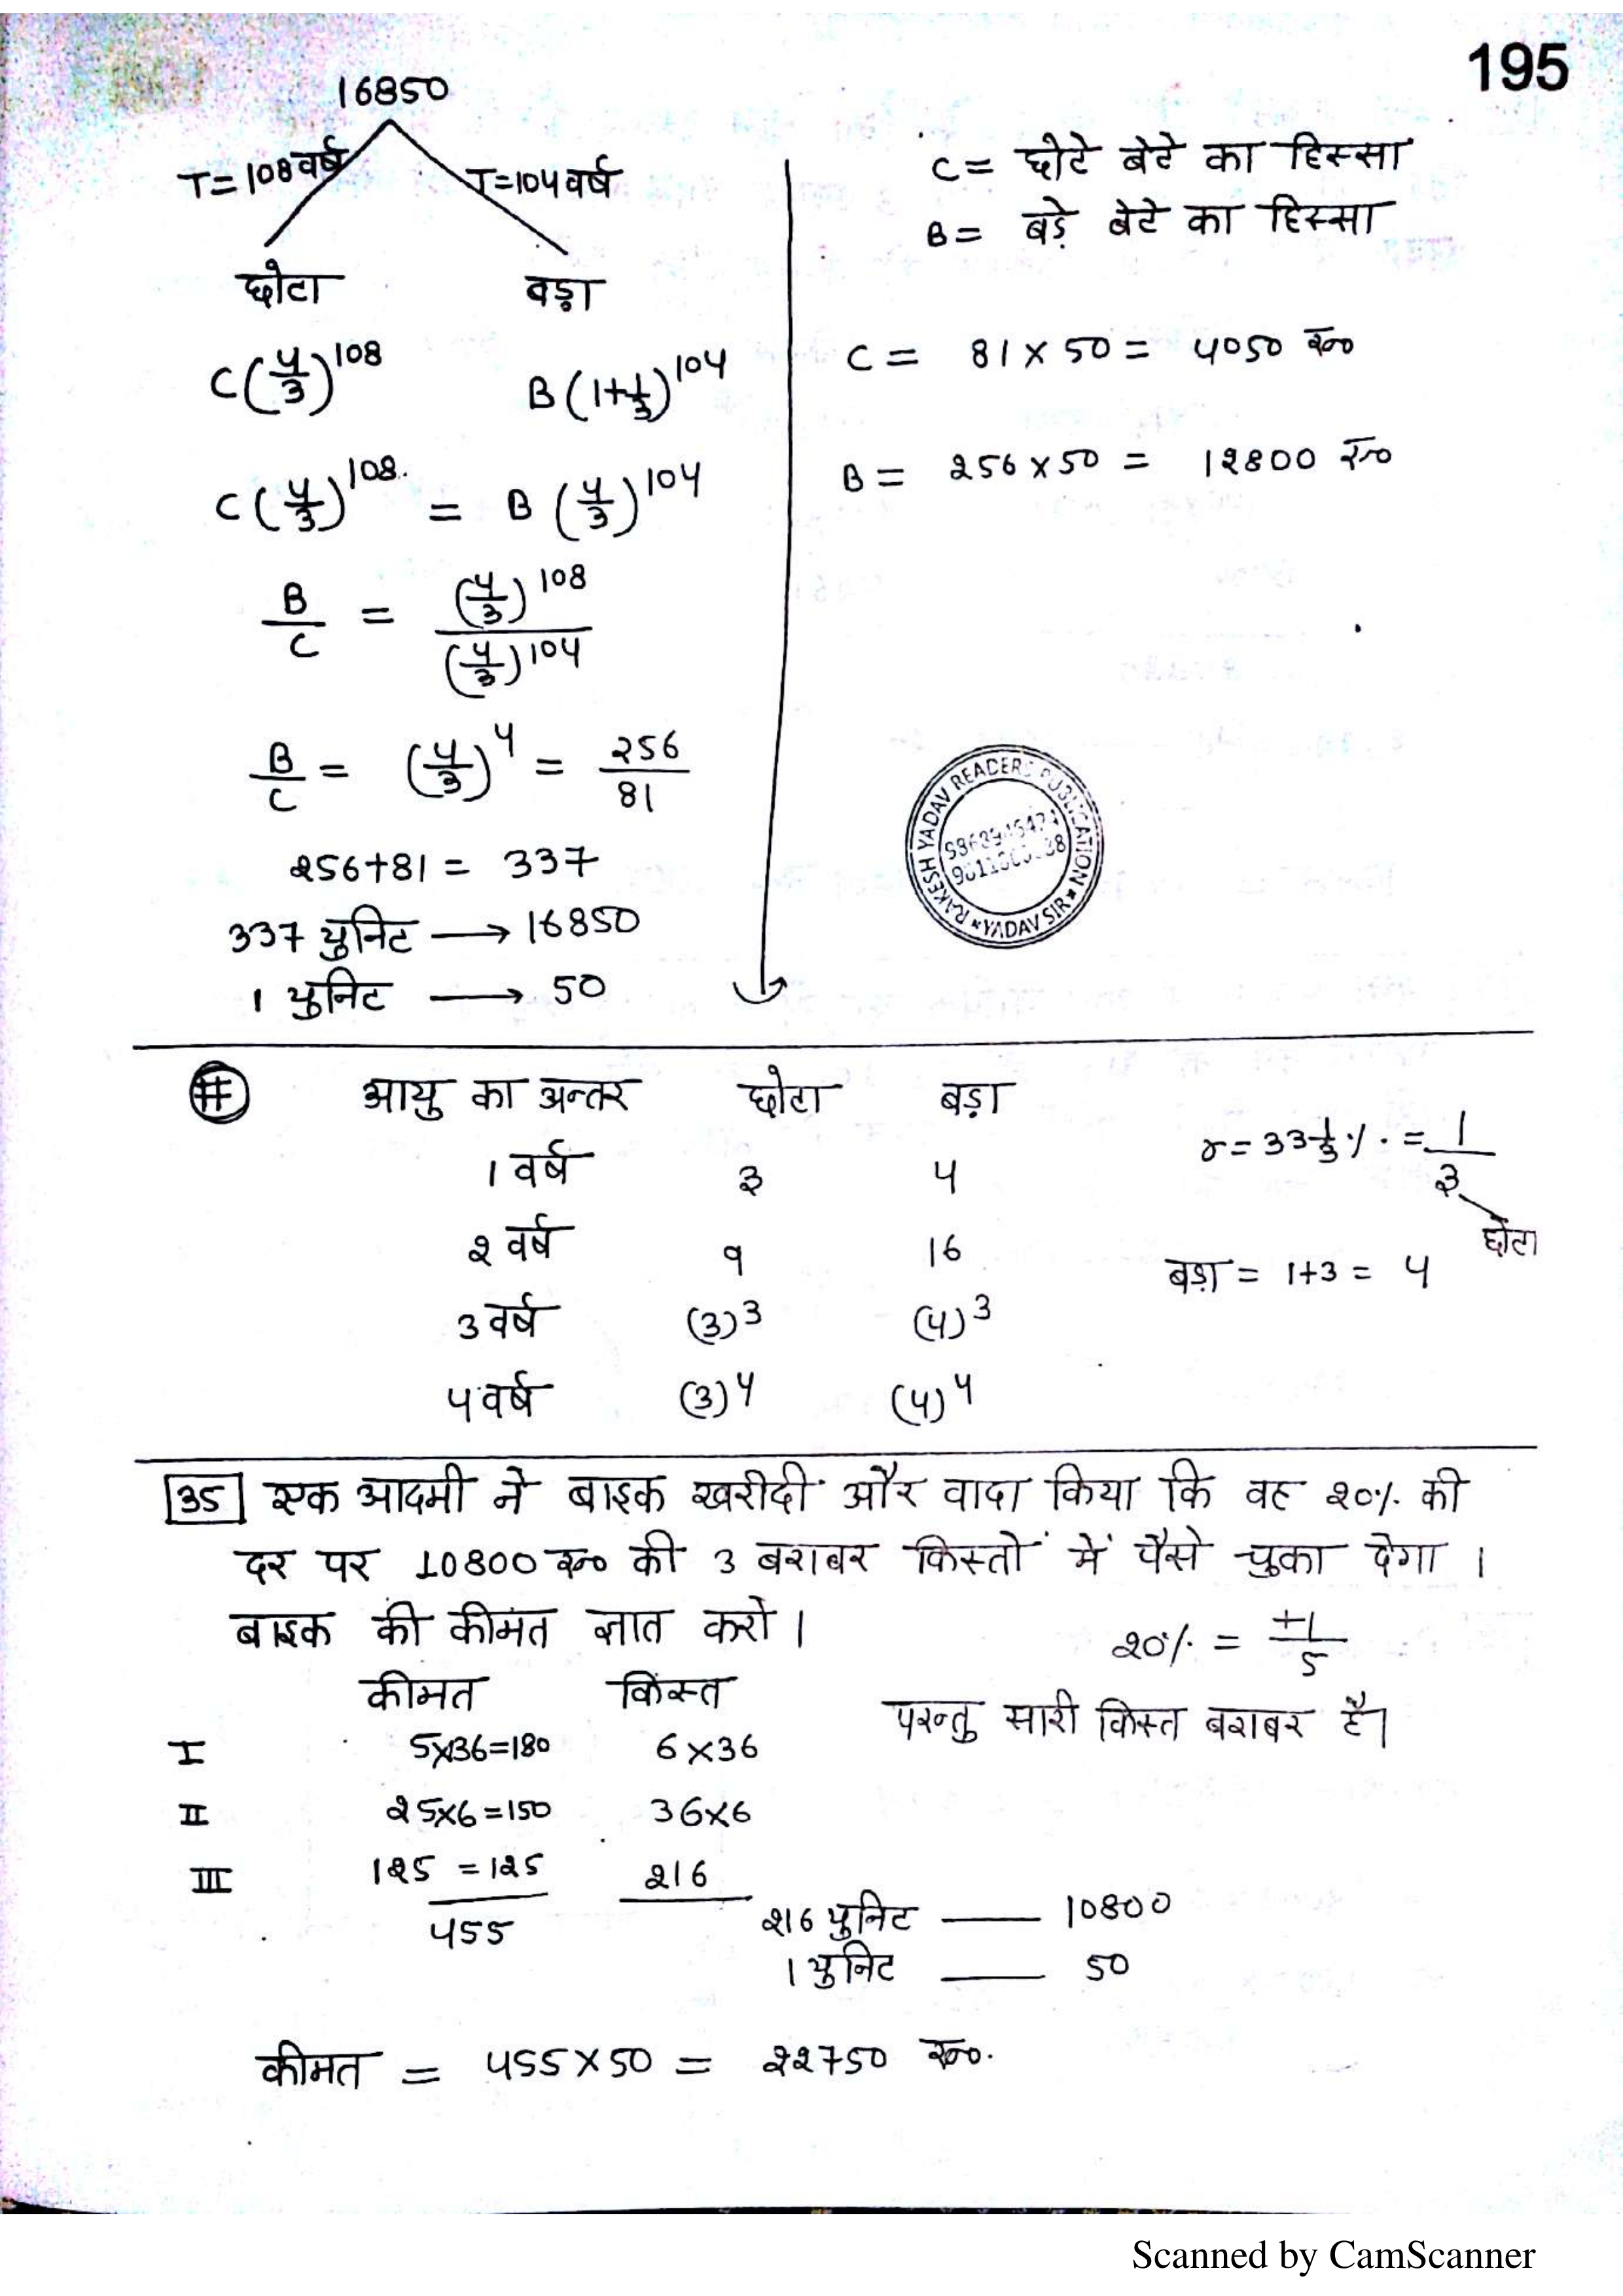 195
16850
T=108वर्ष T=104वर्ष
छोटा बड़ा
C(4/3)^108 B(1+1/3)^104
C(4/3)^108 = B(4/3)^104
B/C = (4/3)^108/(4/3)^104
B/C = (4/3)^4 = 256/81
256+81 = 337
337 युनिट → 16850
1 युनिट → 50
C = छोटे बेटे का हिस्सा
B = बड़े बेटे का हिस्सा
C = 81 x 50 = 4050 रू०
B = 256 x 50 = 12800 रू०
RAKESH YADAV READERS PUBLICATION
YADAV SIR
# आयु का अन्तर छोटा बड़ा
1 वर्ष 3 4
2 वर्ष 9 16
3 वर्ष (3)^3 (4)^3
4 वर्ष (3)^4 (4)^4
r = 33 1/3 % = 1/3
छोटा
बड़ा = 1+3 = 4
35 एक आदमी ने बाइक खरीदी और वादा किया कि वह 20% की
दर पर 10800 रू० की 3 बराबर किस्तों में पैसे चुका देगा ।
बाइक की कीमत ज्ञात करो ।
20% = +1/5
कीमत किस्त
परन्तु सारी किस्त बराबर है।
I 5x36=180 6x36
II 25x6=150 36x6
III 125 =125 216
455
216 युनिट — 10800
1 युनिट — 50
कीमत = 455 x 50 = 22750 रू०.
Scanned by CamScanner